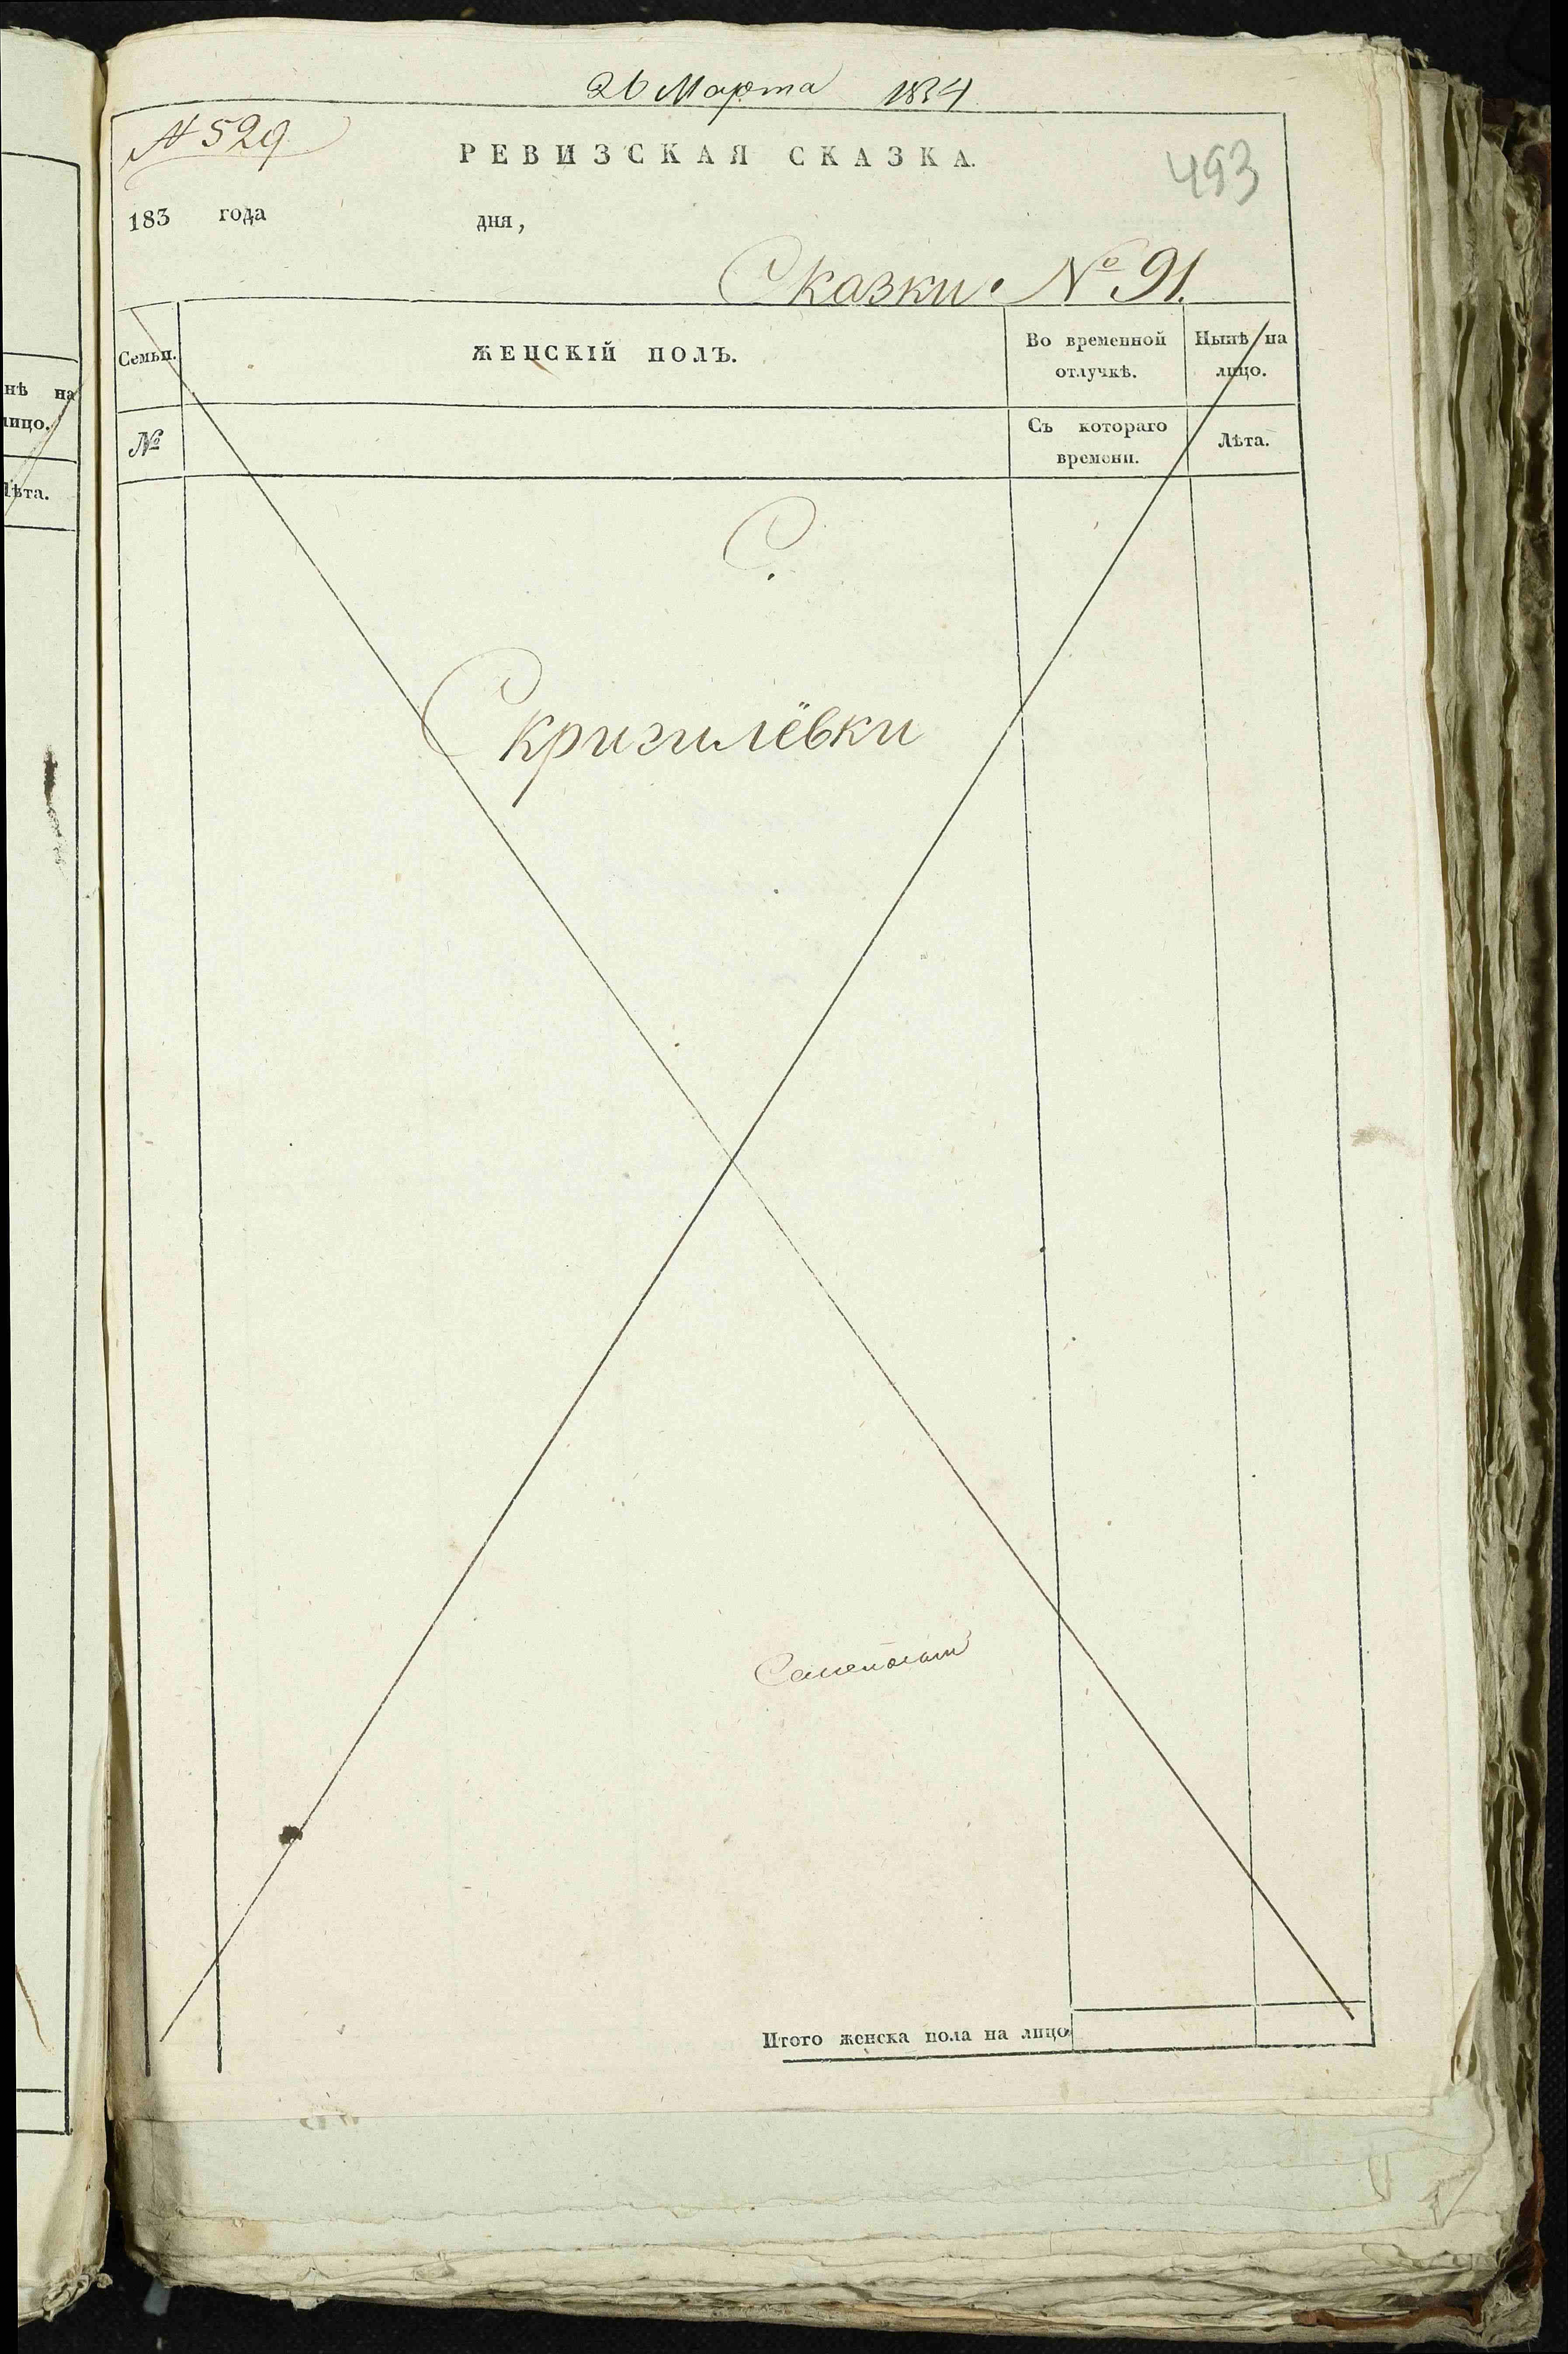 26 Марта 1834
№ 529
РЕВИЗСКАЯ СКАЗКА.
493
183 года дня,
Сказки № 91.
Семьи.
ЖЕНСКІЙ ПОЛЪ.
Во временной отлучкѣ.
Нынѣ на лицо.
№
Съ котораго времени.
Лѣта.
С.
Скригилёвки
Итого женска пола на лицо
нѣ на
лицо.
Лѣта.